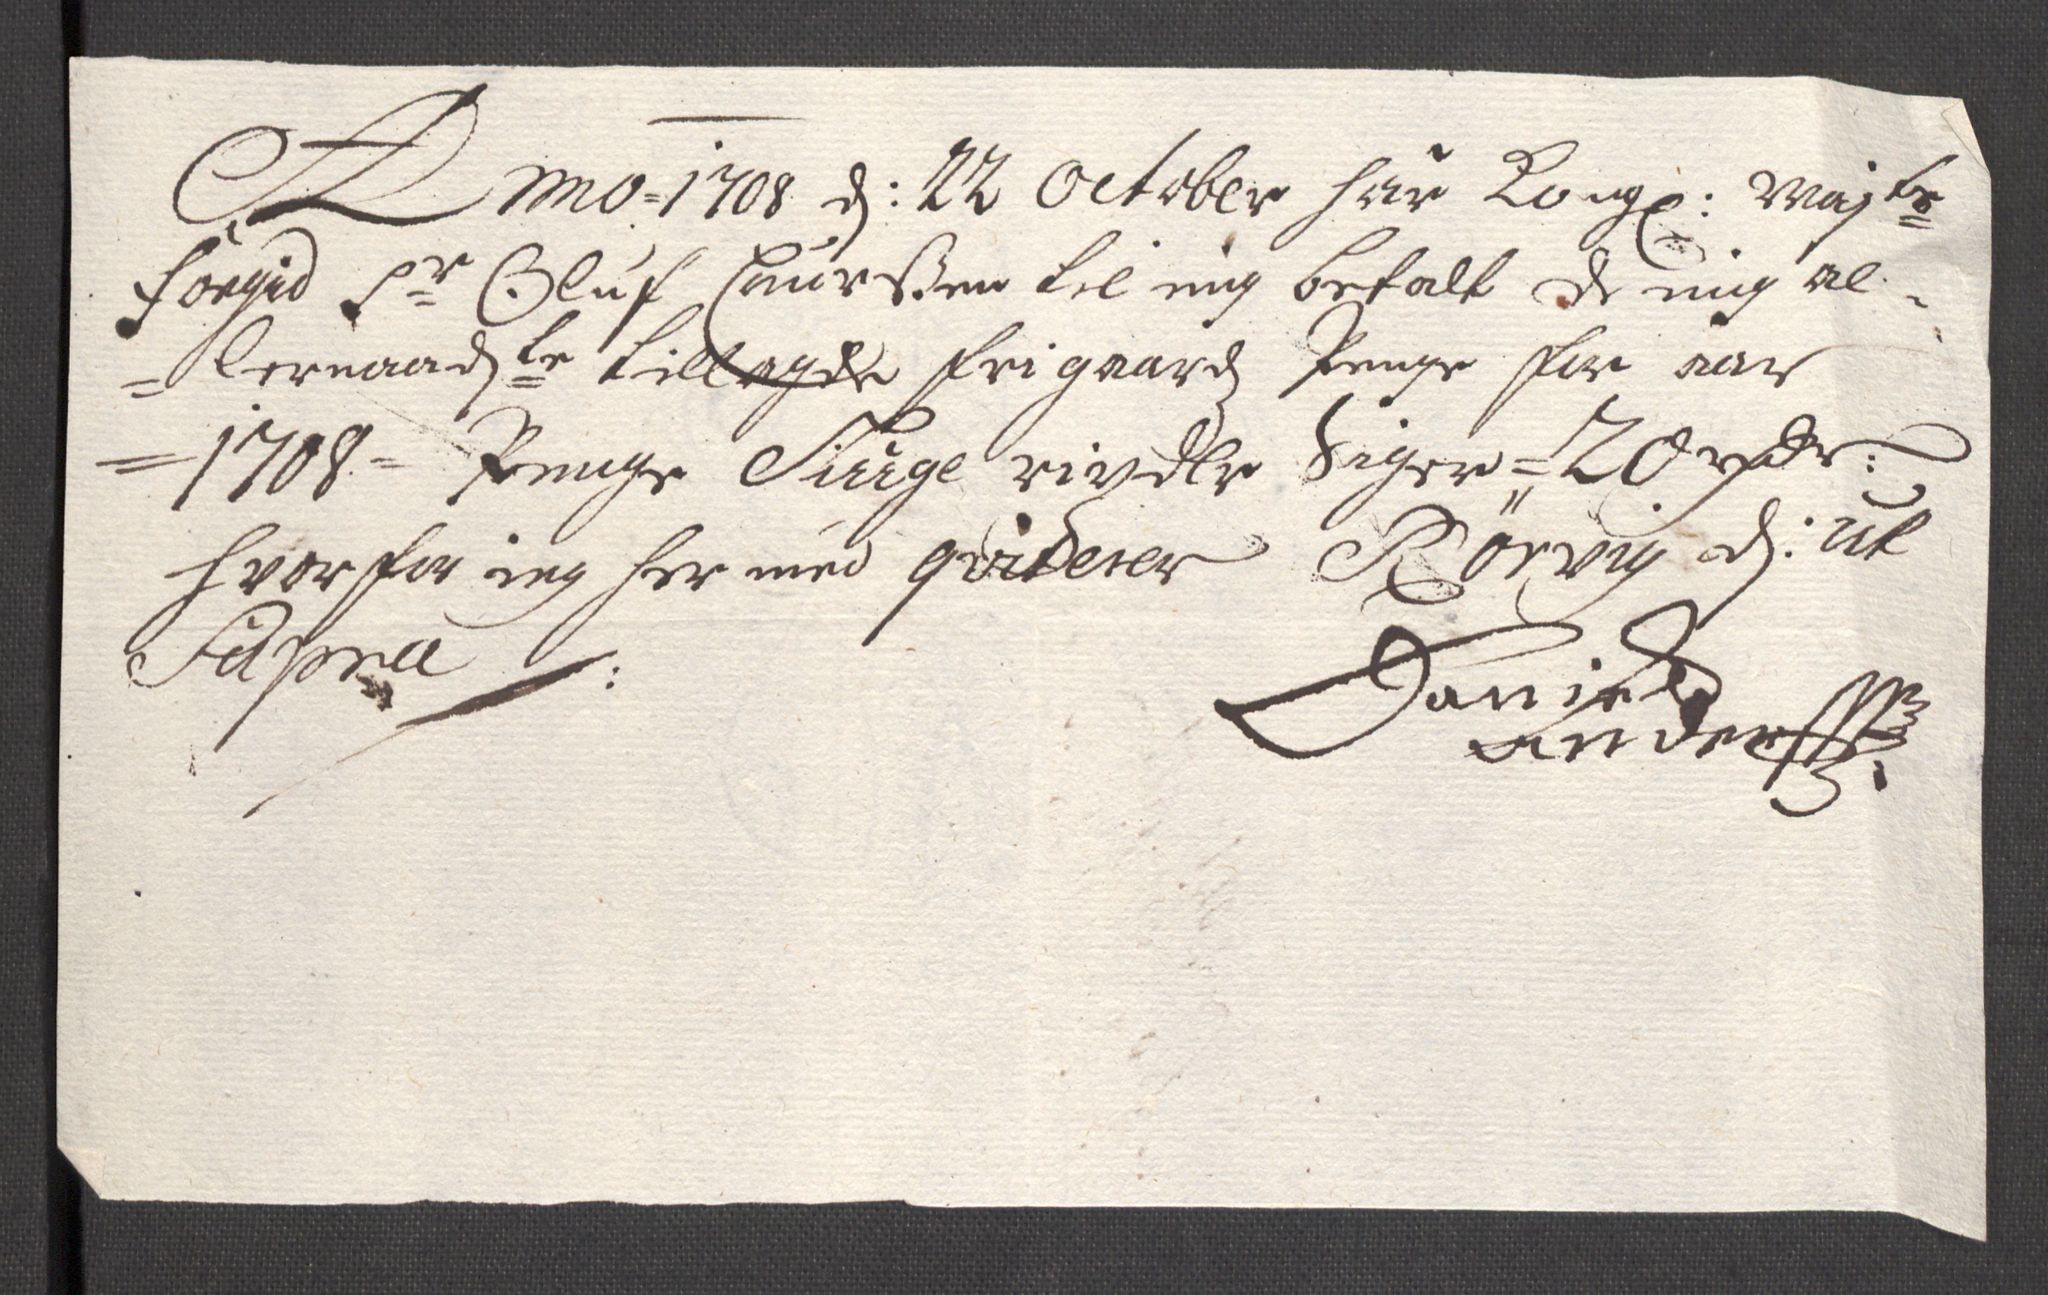 Anno = 1708 d: 22 October har Kongl: Maj^te
fougid S^r Oluf Laurssen til mig betalt de mig al-
=lernaads^te tillagde frigaards Penge for aar
= 1708 - Penge Tiuge rixdlr siger = 20 rxdr:
hvor for ieg her med qvitterer Rörvig d: ut
Supra :
Daniel
Anderss: